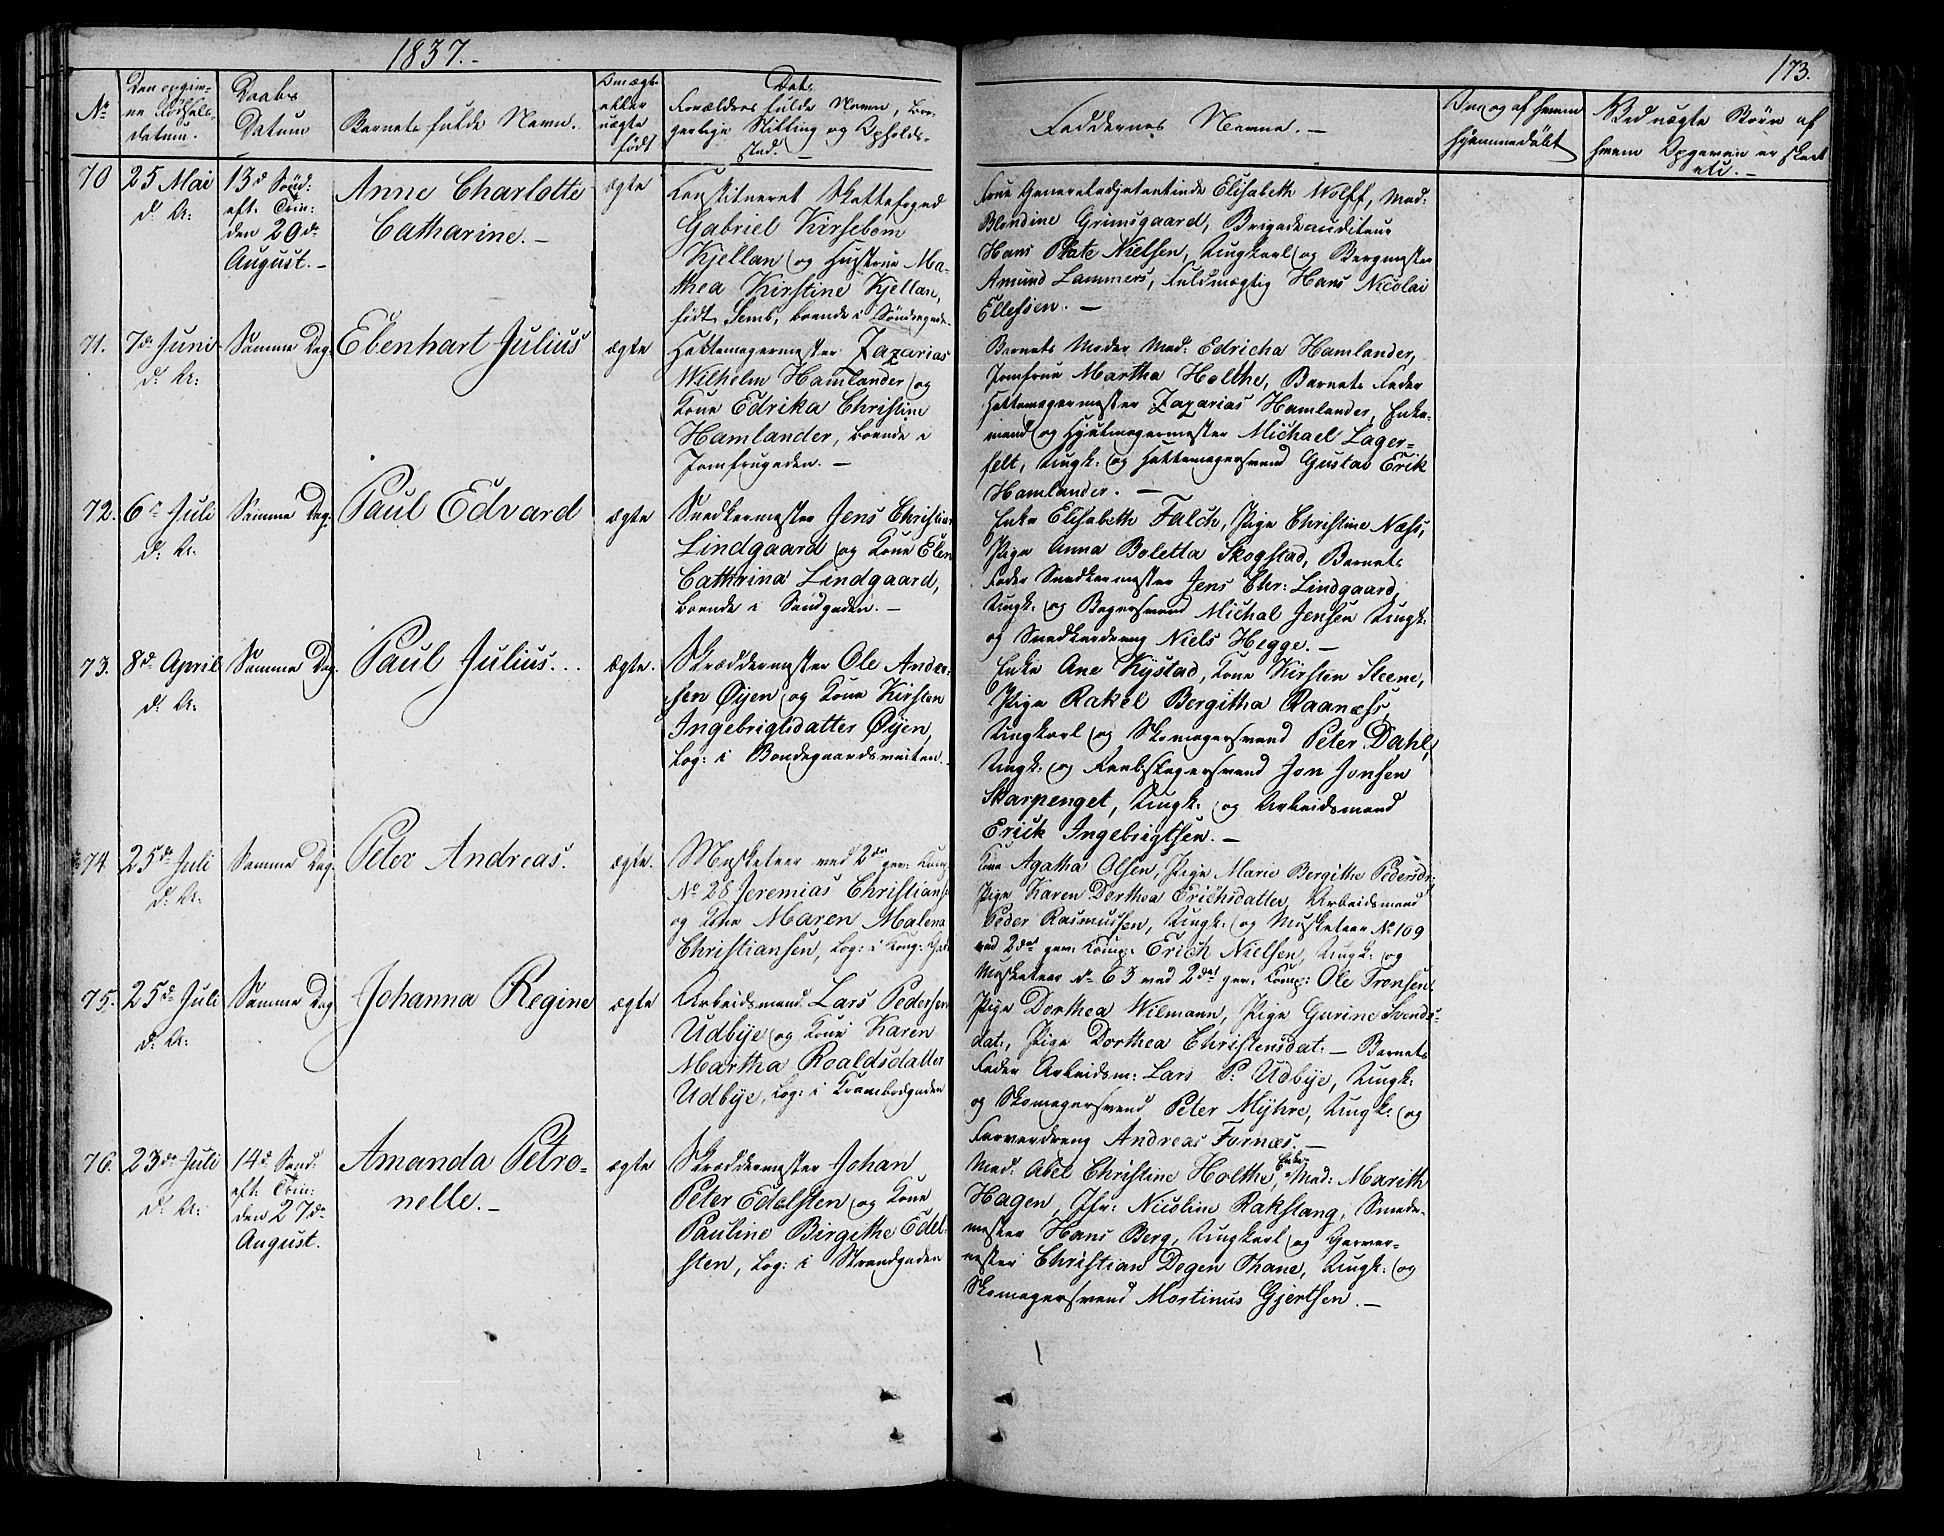 1837.-
173.
No
Den opgiv-
ne Födsels-
datum.
Daabs
Datum
Barnets fulde Navn.
Om ægte
eller
uægte
født
Dets
Forældres fulde Navn, Bor-
gerlige Stilling og Opholds-
sted.
Faddernes Navne.-
Om og af hvem
hjemmedöbt
Ved uægte Börn af
hvem Opgaven er skeet
etc.-
70
25 Mai
d. A:
13d Sönd:
eft. Trin:
den 20de
August.-
Anne Charlotte
Catharine.-
ægte
Constitueret Skattefoged
Gabriel Kirsebom
Kjellan og Hustrue Ma-
thea Kirstine Kjellan,
født Semb, boende i Söndregade.
Frue Generaladjutantinde Elisabeth Wolff, Mad:
Blondine Grimsgaard, Brigadeauditeur
Hans Plate Nielsen, Ungkarl og Bergmester
Amund Lammers, Fuldmægtig Hans Nicolai
Ellefsen.-
71.
7de Juni
d. A:
Samme Dag.
Ebenhart Julius
ægte
Hattemagermester Zaxarias
Wilhelm Hamlander og
Kone Edrika Christine
Hamlander, boende i
Jomfrugaden.-
Barnets Moder Mad: Edricha Hamlander,
Jomfrue Martha Holthe, Barnets Fader
Hattemagermester Zaxarias Hamlander, Enke-
mand og Hjulmagermester Michael Lager-
felt, Ungk: og Hattemagersvend Gustav Erik
Hamlander.-
72.
6te Juli
d. A:
Samme Dag.
Paul Edvard
ægte
Snedkermester Jens Christian
Lindgaard og Kone Elen
Cathrina Lindgaard,
boende i Sandgaden.-
Enke Elisabeth Falch, Pige Christine Næss,
Pige Anna Boletta Skogstad, Barnets
Fader Snedkermester Jens Chr: Lindgaard,
Ungk: og Bagersvend Michal Jensen Ungk:
og Snedkerdreng Niels Hegge.-
73.
8de April
d. A:
Samme Dag.
Paul Julius...
ægte.
Skræddermester Ole Ander-
sen Øyen og Kone Kirsten
Ingebrigtsdatter Øyen,
Log: i Bondegaardsveiten.-
Enke Ane Kystad, Kone Kirsten Steene,
Pige Rakel Bergitha Raanæss,
Ungkarl og Skomagersvend Peter Dahl,
Ungk: og Reebslagersvend Jon Jonsen
Skarpenget, Ungk: og Arbeidsmand
Erick Ingebrigtsen.-
74
25de Juli
d. A:
Samme Dag.
Peter Andreas.
ægte.
Musketeer ved 2den gev: Komp:
No 28 Jeremias Christians
og Kone Maren Malena
Christiansen, Log: i Kong: Gad
Kone Agatha Olsen, Pige Marie Bergithe Pedersdr
Pige Karen Dorthea Erichsdatter, Arbeidsmand
Peder Rasmussen, Ungk: og Musketeer No 109
ved 2det gev: Komp: Erich Nielsen, Ungk: og
Musketeer No 63 ved 2det gev: Komp: Ole Tronsen
75.
25de Juli
d. A:
Samme Dag
Johanna Regine
ægte
Arbeidsmand Lars Pedersen
Udbye og Kone Karen
Martha Roaldsdatter
Udbye, Log: i Krambodgaden
Pige Dorthea Wilmann, Pige Gurine Svends-
dat:, Pige Dorthea Christensdat:- Barnets
Fader Arbeidsm: Lars P: Udbye, Ungk:
og Skomagersvend Peter Myhre, Ungk: og
Farverdreng Andreas Furnæs.-
76.
23de Juli
d. A:
14de Sönd:
eft. Trin:
den 27de
August.
Amanda Petro-
nelle.-
ægte
Skræddermester Johan
Peter Edelsten og Kone
Pauline Birgithe Edel-
sten, Log: i Strandgaden
Mad: Abel Christine Holthe, Enke Mad: Marith
Hagen, Jfr: Nicoline Rakstang, Smede-
mester Hans Berg, Ungkarl og Garver-
mester Christian Degen Thane, Ungk: og
Skomagersvend Martinus Gjertsen.-